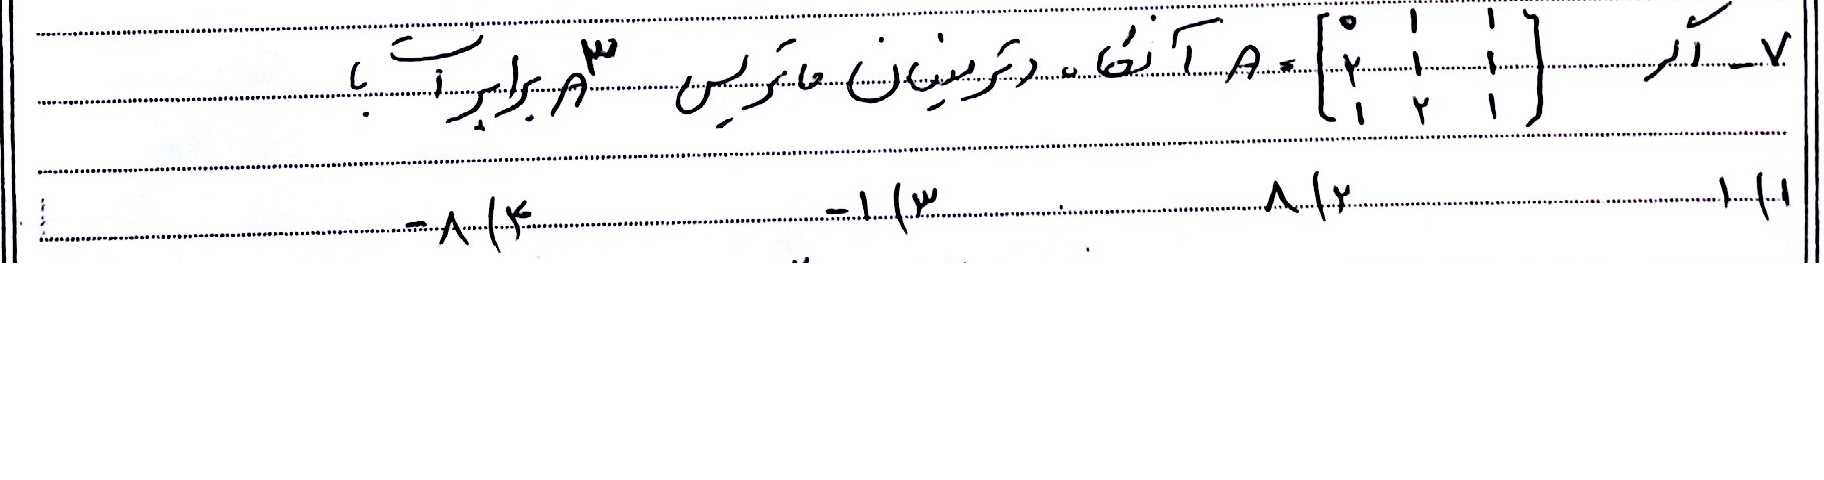 ۷_ اگر A = [ ۰ ۱ ۱ ; ۲ ۱ ۱ ; ۱ ۲ ۱ ] آنگاه دترمینان ماتریس A³ برابر است با
۱) ۱ ۲) ۸ ۳) ۱- ۴) ۸-